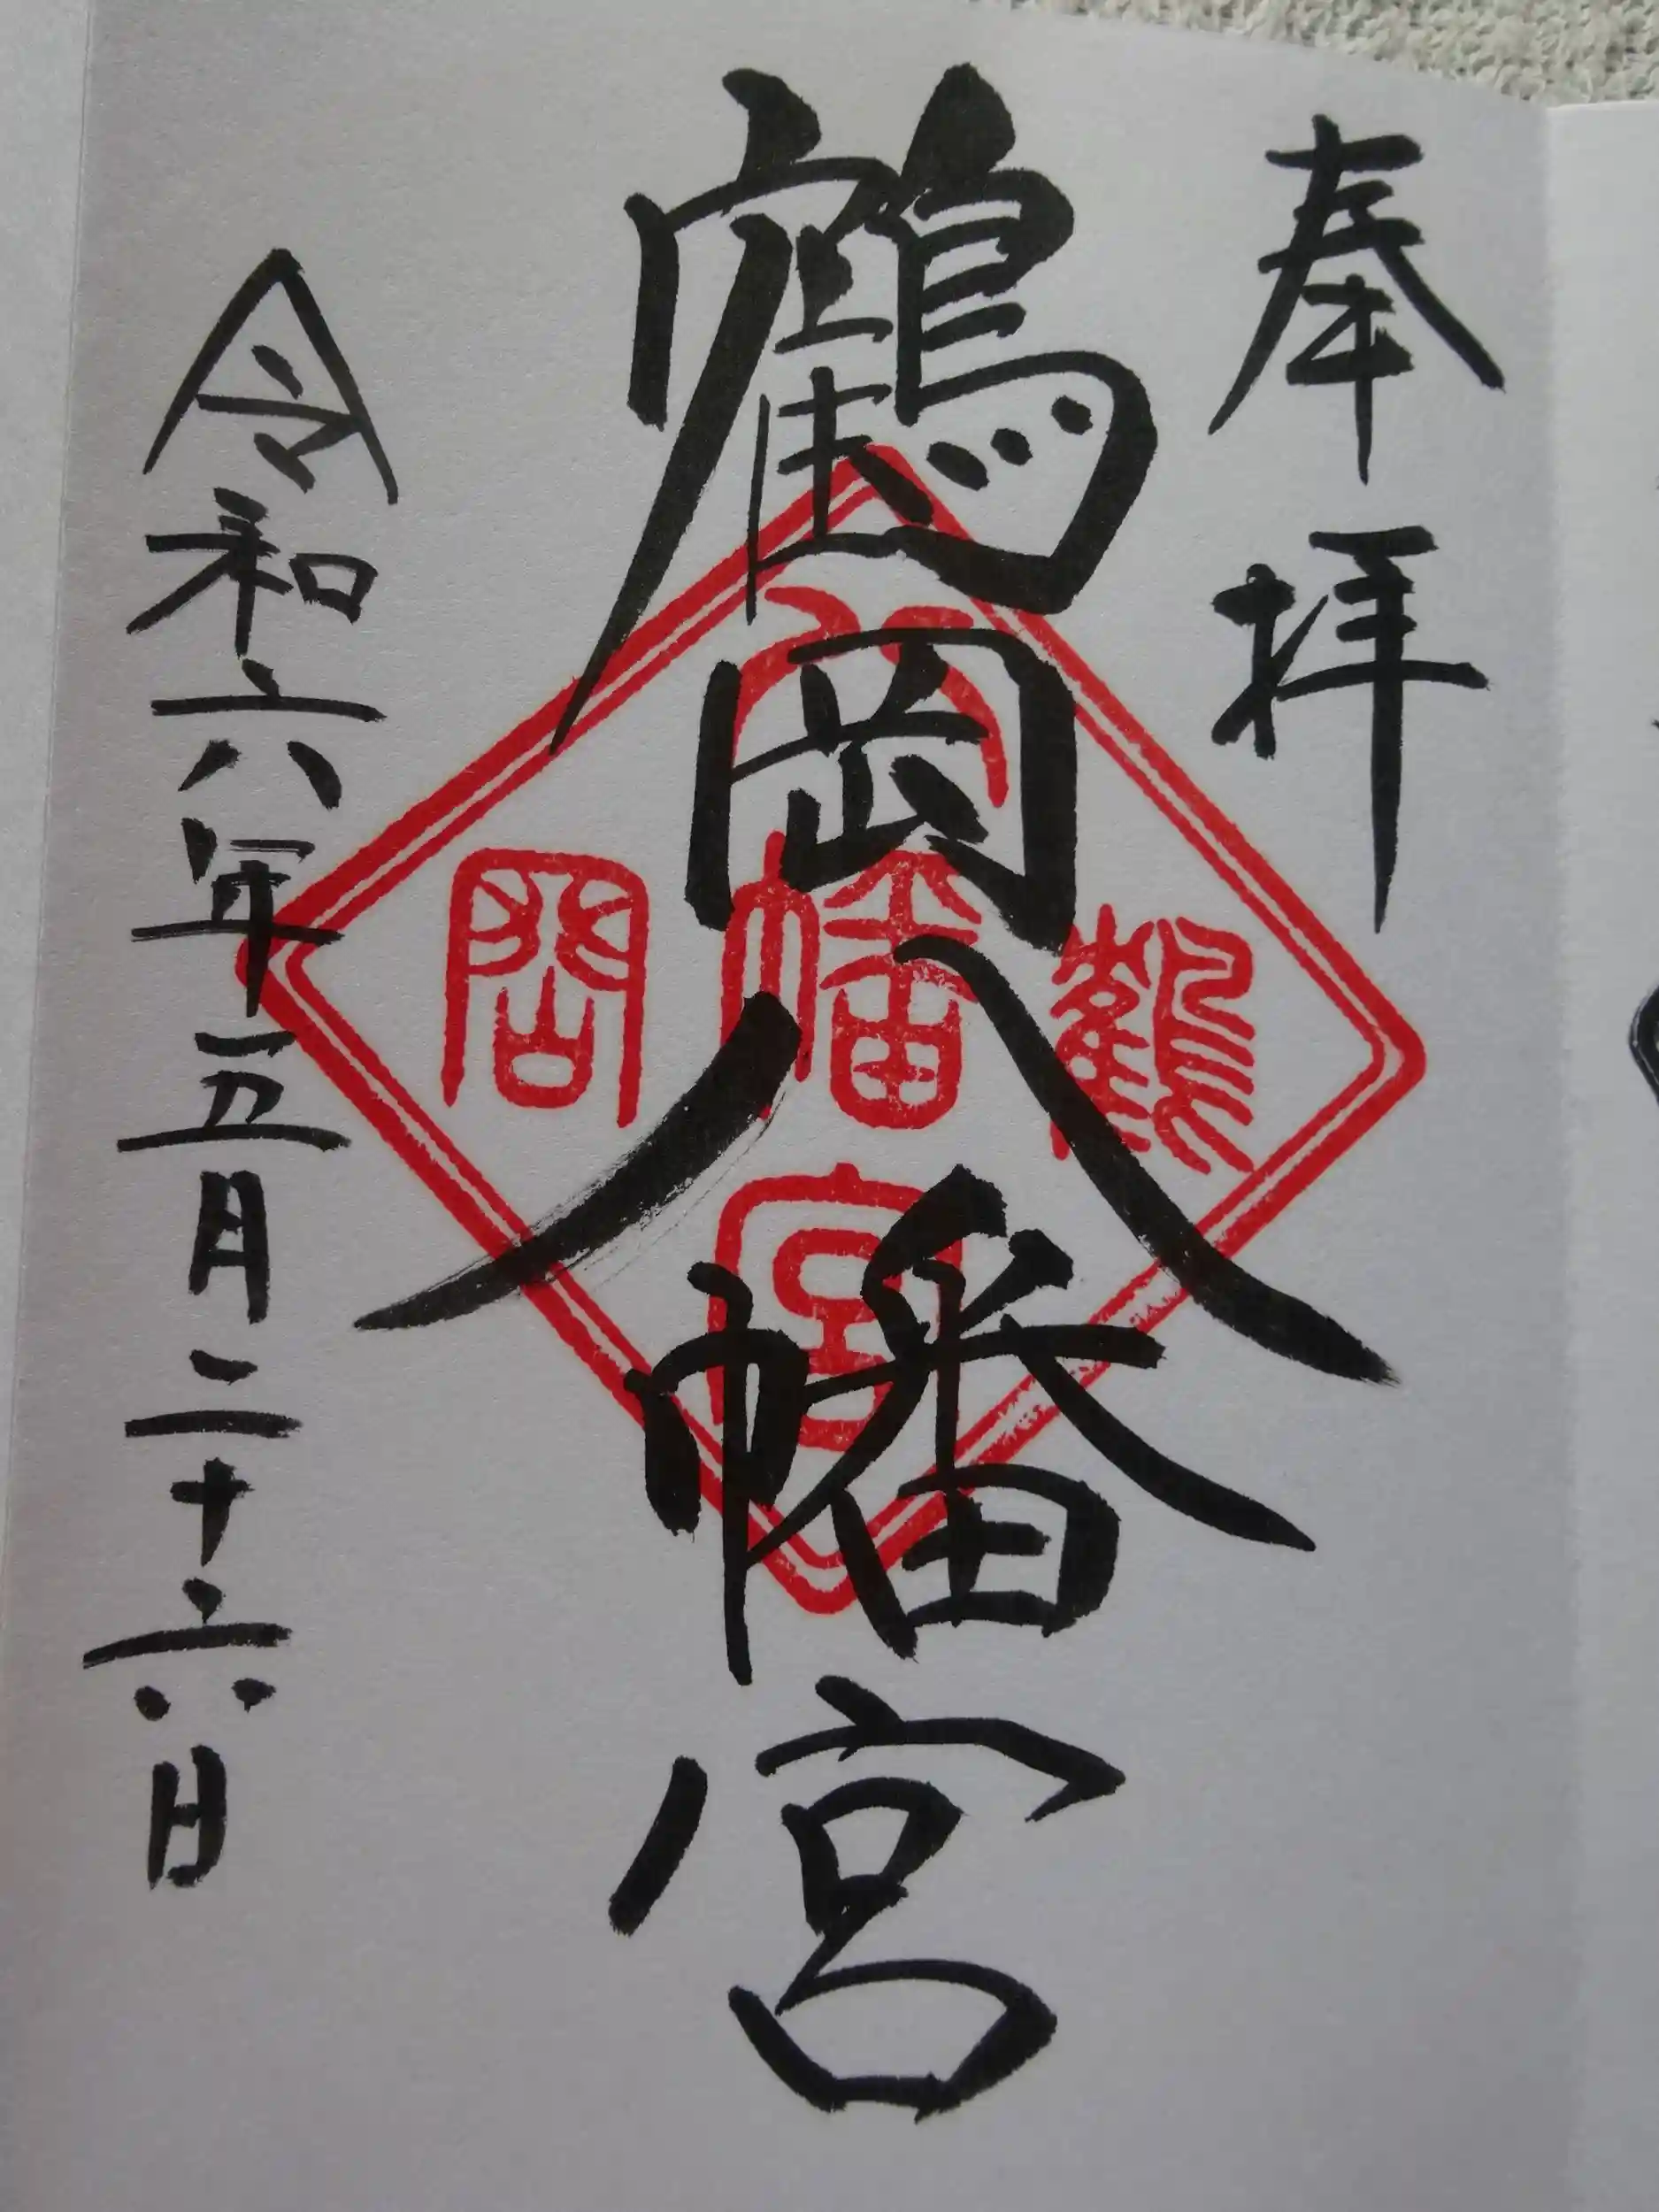 奉拝
鶴岡八幡宮
鶴岡
八幡宮
令和六年五月二十六日